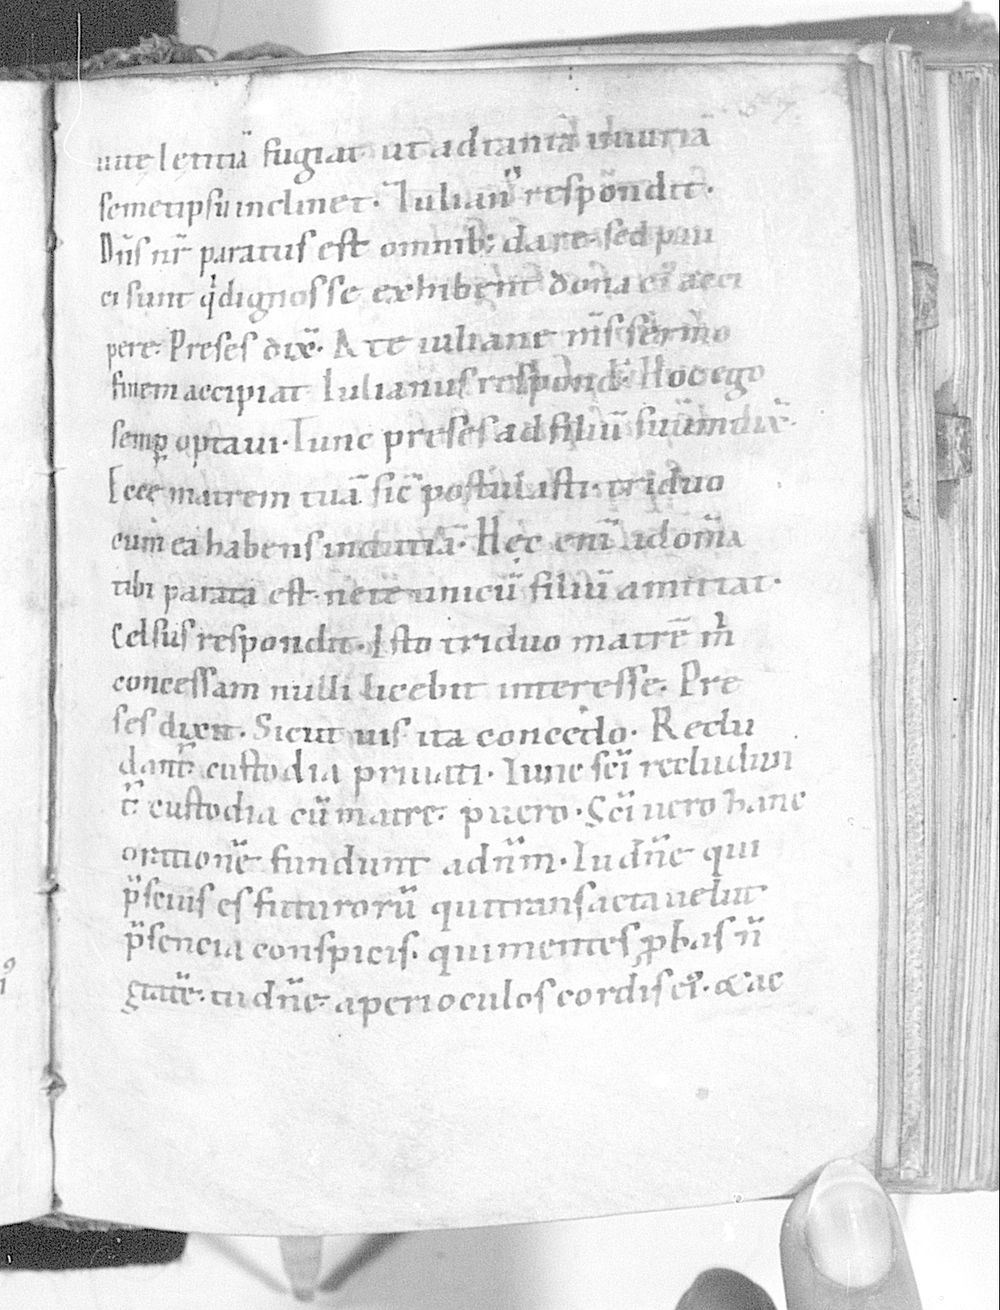 letitiā fugiat. ut ad tantā iniuriā
semetipsū inclinet. Iulian᷒ respondit.
Dn̄s nr̄ paratus est omnib; dare. sed pau
ci sunt q́ dignos se exhibent dona ei᷒ acci
pere. Preses dix̄. A te iuliane nr̄is sermo
finem accipiat. Iulianus respond̄. Hoc ego
semꝑ optaui. Tunc preses ad filiū suū dix̄.
Ecce matrem tuā sic̄ postulasti. triduo
cum ea habens indutiā. Hęc enī ad om̄ia
tibi parata est. ne te unicū filiū amittat.
Celsus respondit. Isto triduo matrē m̄
concessam nulli licebit interesse. Pre
ses dixit. Sicut uis ita concedo. Reclu
dant᷑ custodia priuati. Tunc sc̄i recludun
t᷑ custodia cū matre. puero. Sc̄i uero hanc
orationē fundunt ad dn̄m. Tu dn̄e qui
p̄scius es futurorū qui transacta uelut
p̄sencia conspicis. qui mentes ꝓbas n̄
tu dn̄e. aperi oculos cordis ei᷒. & ac